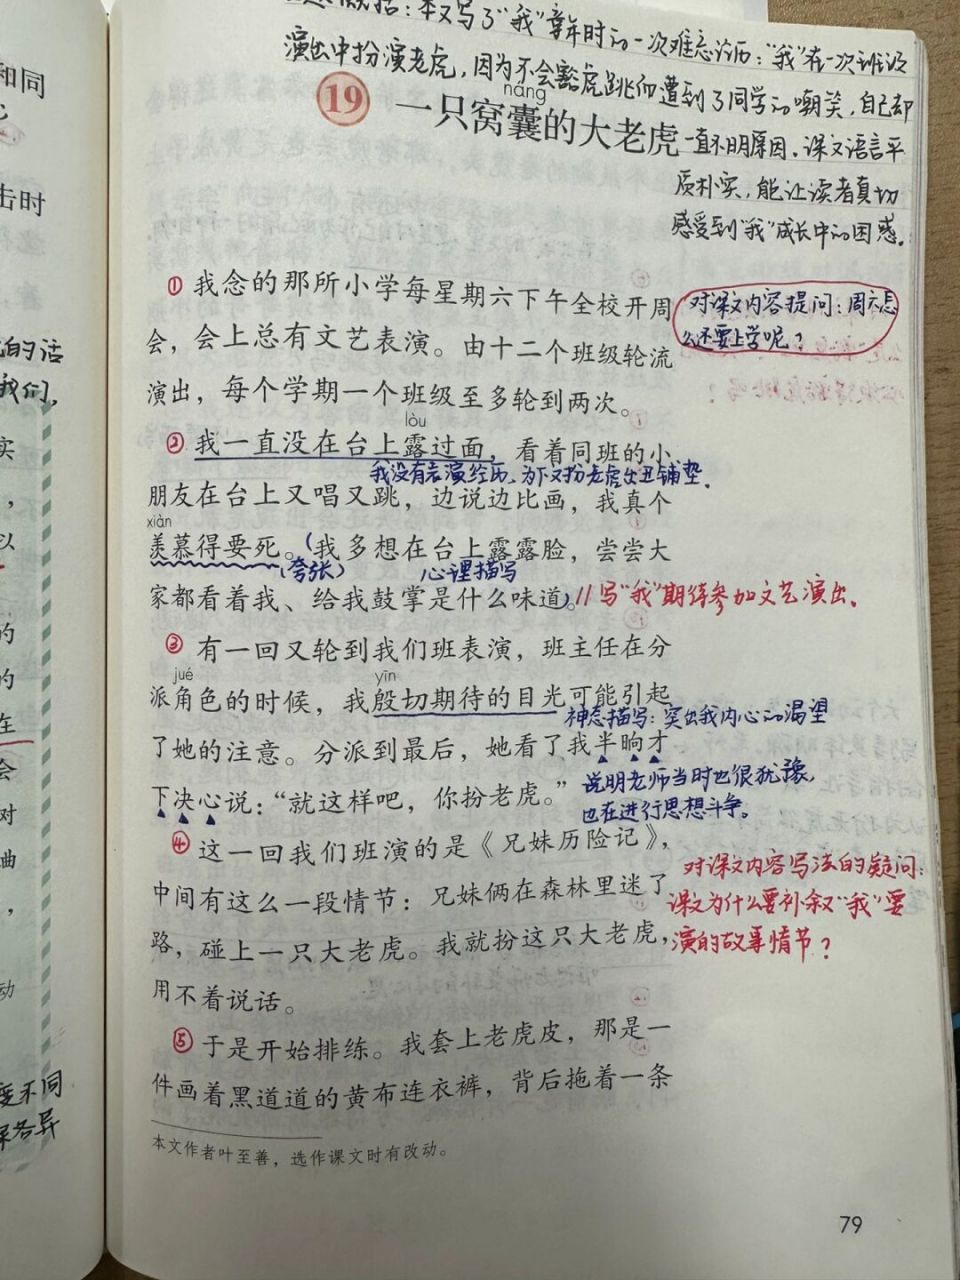 本文写了“我”童年时的一次难忘经历：“我”在一次班级
演出中扮演老虎，因为不会豁虎跳而遭到了同学的嘲笑，自己却
一直不明原因。课文语言平
质朴实，能让读者真切
感受到“我”成长中的困惑。
19
náng
一只窝囊的大老虎
① 我念的那所小学每星期六下午全校开周
会，会上总有文艺表演。由十二个班级轮流
演出，每个学期一个班级至多轮到两次。
对课文内容提问：周六怎
么还要上学呢？
lòu
② 我一直没在台上露过面，看着同班的小
我没有表演经历，为下文扮老虎出丑铺垫。
朋友在台上又唱又跳，边说边比画，我真个
xiàn
羡慕得要死。(我多想在台上露露脸，尝尝大
(夸张)
心理描写
家都看着我、给我鼓掌是什么味道)。//
写“我”期待参加文艺演出。
③ 有一回又轮到我们班表演，班主任在分
jué
yīn
派角色的时候，我殷切期待的目光可能引起
神态描写：突出我内心的渴望
了她的注意。分派到最后，她看了我半晌才
下决心说：“就这样吧，你扮老虎。”
说明老师当时也很犹豫，
也在进行思想斗争。
④ 这一回我们班演的是《兄妹历险记》，
中间有这么一段情节：兄妹俩在森林里迷了
路，碰上一只大老虎。我就扮这只大老虎，
用不着说话。
对课文内容写法的疑问：
课文为什么要补叙“我”要
演的故事情节？
⑤ 于是开始排练。我套上老虎皮，那是一
件画着黑道道的黄布连衣裤，背后拖着一条
本文作者叶至善，选作课文时有改动。
79
和同
击时
的话
我们，
实
以
的
的
在
会
对
曲
动
不同
各异